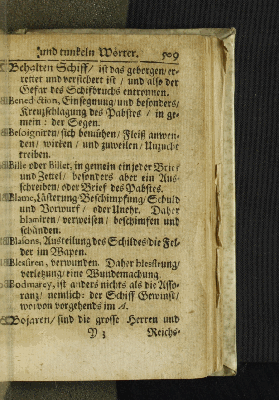 und tunkeln Wörter. 509
Behalten Schiff/ ist das geborgen/ er-
rettet und versichert ist / und also der
Gefar des Schifbruchs entronnen.
Benediction, Einsegnung und besonders/
Kreuzschlagung des Pabstes / in ge-
mein: der Segen.
Besoigniren/ sich bemühen/ Fleiß anwen-
den/ wirken/ und zuweilen/ Unzucht
treiben.
Bille oder Billet, in gemein ein jeder Brief
und Zettel/ besonders aber ein Aus-
schreiben/ oder Brief des Pabstes.
Blame, Lästerung/ Beschimpfung/ Schuld
und Vorwurf / oder Unehr. Daher
blamiren/ verweisen/ beschimpfen und
schänden.
Blasons, Austeilung des Schildes/ die Fel-
der im Wapen.
Blessiren, verwunden. Daher blessirung/
verletzung/ eine Wundemachung.
Bodmarey, ist anders nichts als die Asso-
ranz/ nemlich: der Schiff Gewinst/
wovon vorgehends im A.
Bojaren/ sind die grosse Herren und
Y 3 Reichs-